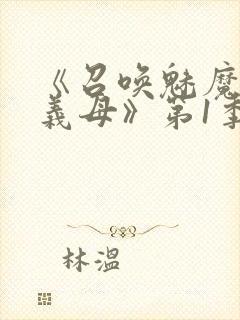 《召唤魅魔
義母》第1季
林溫